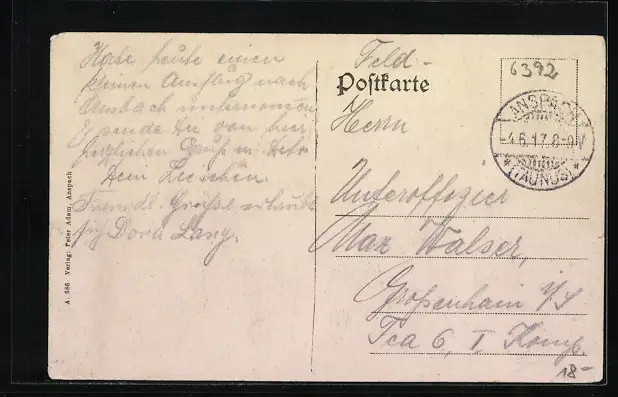 Habe heute einen
kleinen Ausflug nach
Ansbach unternommen
sende Dir von hier
herzlichen Gruß u.
Dein Lieschen
Freundl. Grüße erlaubt
sich Dora Lang.
A. 586 Verlag: Peter Adam, Anspach.
Feld-
Postkarte
Herrn
Unteroffizier
Max Walser,
Großenhain i/S
Fea 6, I Komp.
6392
ANSPACH
-4.6.17.8-9V
* (TAUNUS) *
18-